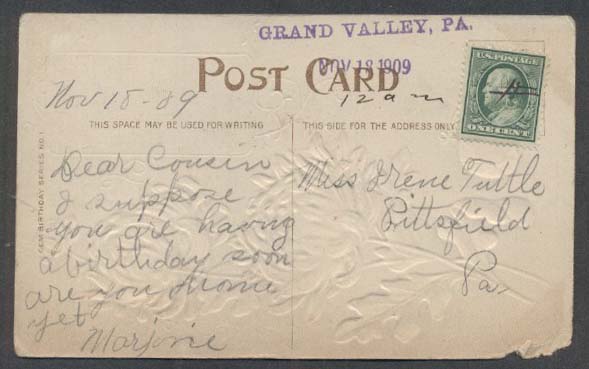 GRAND VALLEY, PA.
NOV 18 1909
POST CARD
12 am
Nov 18-09
THIS SPACE MAY BE USED FOR WRITING
THIS SIDE FOR THE ADDRESS ONLY
U.S. POSTAGE
ONE CENT
GEM BIRTHDAY SERIES NO. 1
Dear Cousin
I suppose
you are having
a birthday soon
are you home
yet
Marjorie
Miss Irene Tuttle
Pittsfield
Pa.